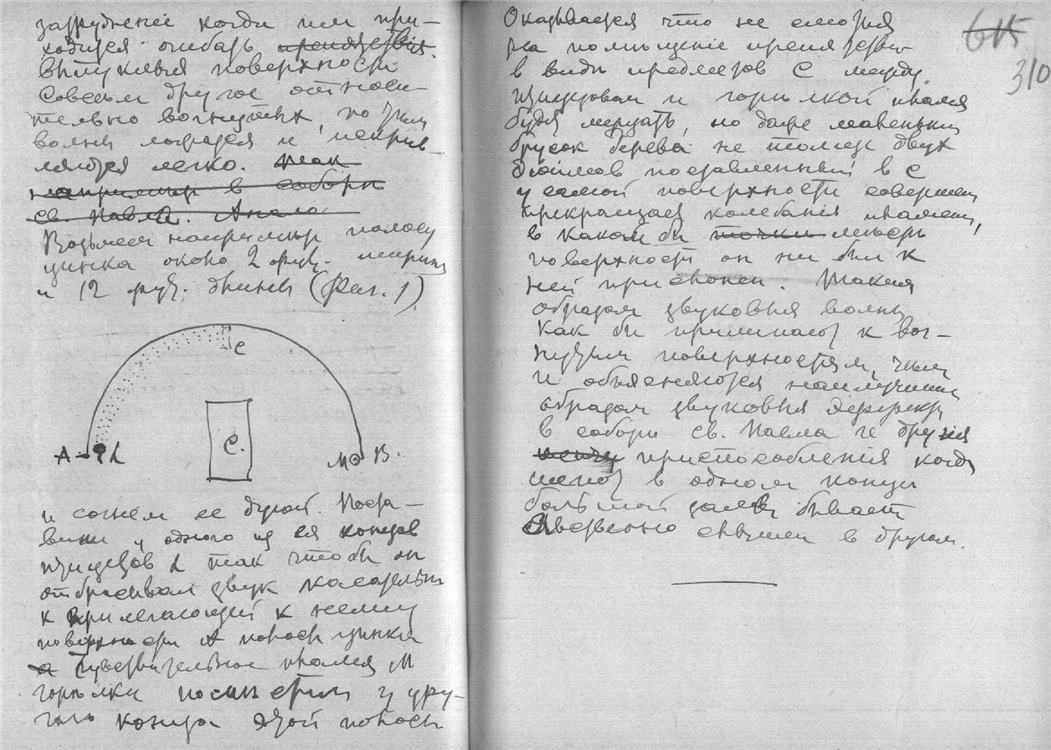 затрудненіе когда им при-
ходится огибать препятствія
выпуклыя поверхности
Совсем другое относи-
тельно вогнутых, по этим
волны ложатся и
легко. Так
например в соборе
св. Павла.
Возьмем например полосу
цинка около 2 фут. ширины
и 12 фут. длины (Фиг. 1)
c
C.
A d
M B.
и согнем ее дугой. Поста-
вим у одного из ея концов
d так чтобы он
отбрасывал звук касательно
к прилегающей к нему
поверхности A полосы цинка
а чувствительное пламя M
горелки поместим у дру-
гого конца этой полосы
615
310
Оказывается что не смотря
на помещеніе препятствій
в виде предметов C между
и горелкой пламя
будет мерцать, но даже маленькій
брусок дерева не толще двух
дюймов поставленный в c
у самой поверхности совершенно
прекращает колебанія пламени,
в каком бы точки месте
поверхности он ни был к
ней прислонен. Таким
образом звуковыя волны
как бы прилипают к вог-
нутым поверхностям, чем
и объясняются наилучшим
образом звуковыя эффекты
в соборе св. Павла и другія
приспособленія когда
шепот в одном конце
большой залы бывает
явственно слышен в другом.